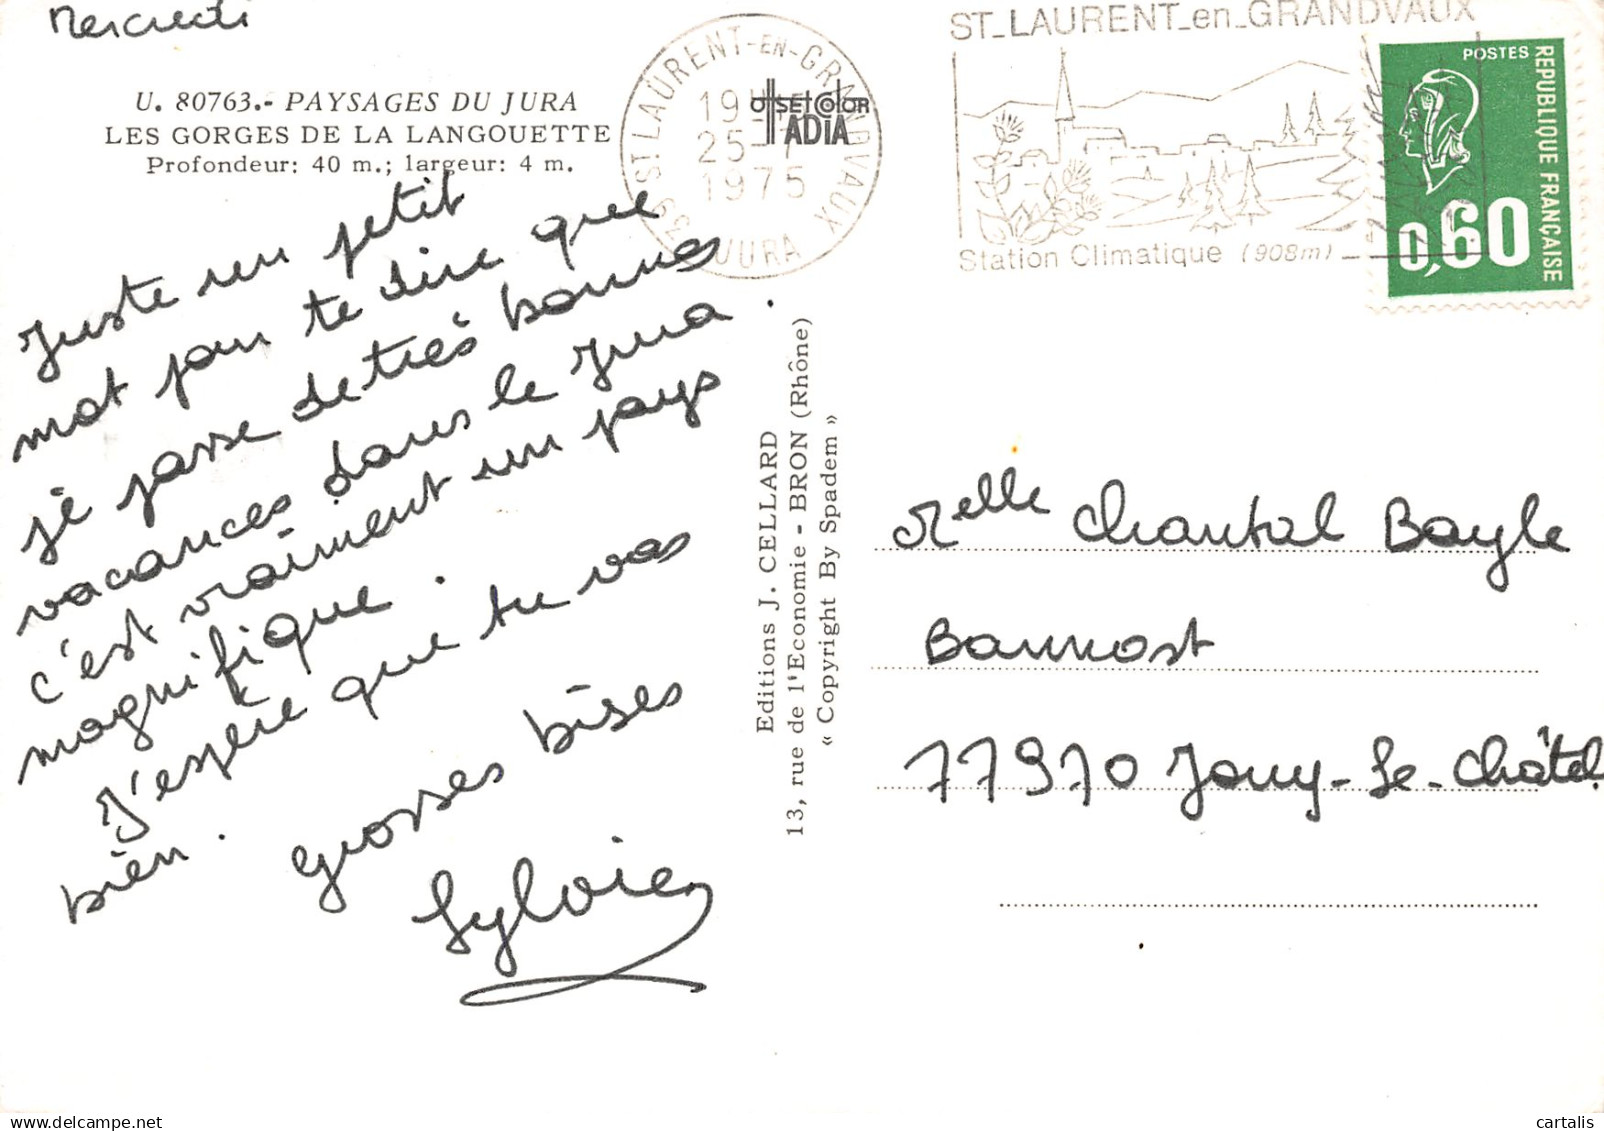 Mercredi
U. 80763.- PAYSAGES DU JURA
LES GORGES DE LA LANGOUETTE
Profondeur: 40 m.; largeur: 4 m.
Juste un petit
mot pour te dire que
je passe de très bonnes
vacances dans le Jura.
c'est vraiment un pays
magnifique.
J'espère que tu vas
bien.
Grosses bises
Sylvie
39 ST LAURENT-EN-GRANDVAUX
JURA
1975
OFFSET COLOR
ADIA
ST_LAURENT_en_GRANDVAUX
Station Climatique (908m)
POSTES
REPUBLIQUE FRANÇAISE
0,60
Editions J. CELLARD
13, rue de l'Economie - BRON (Rhône)
« Copyright By Spadem »
Melle Chantal Bayle
Bannost
77970 Jouy-Le-Châtel
cartalis